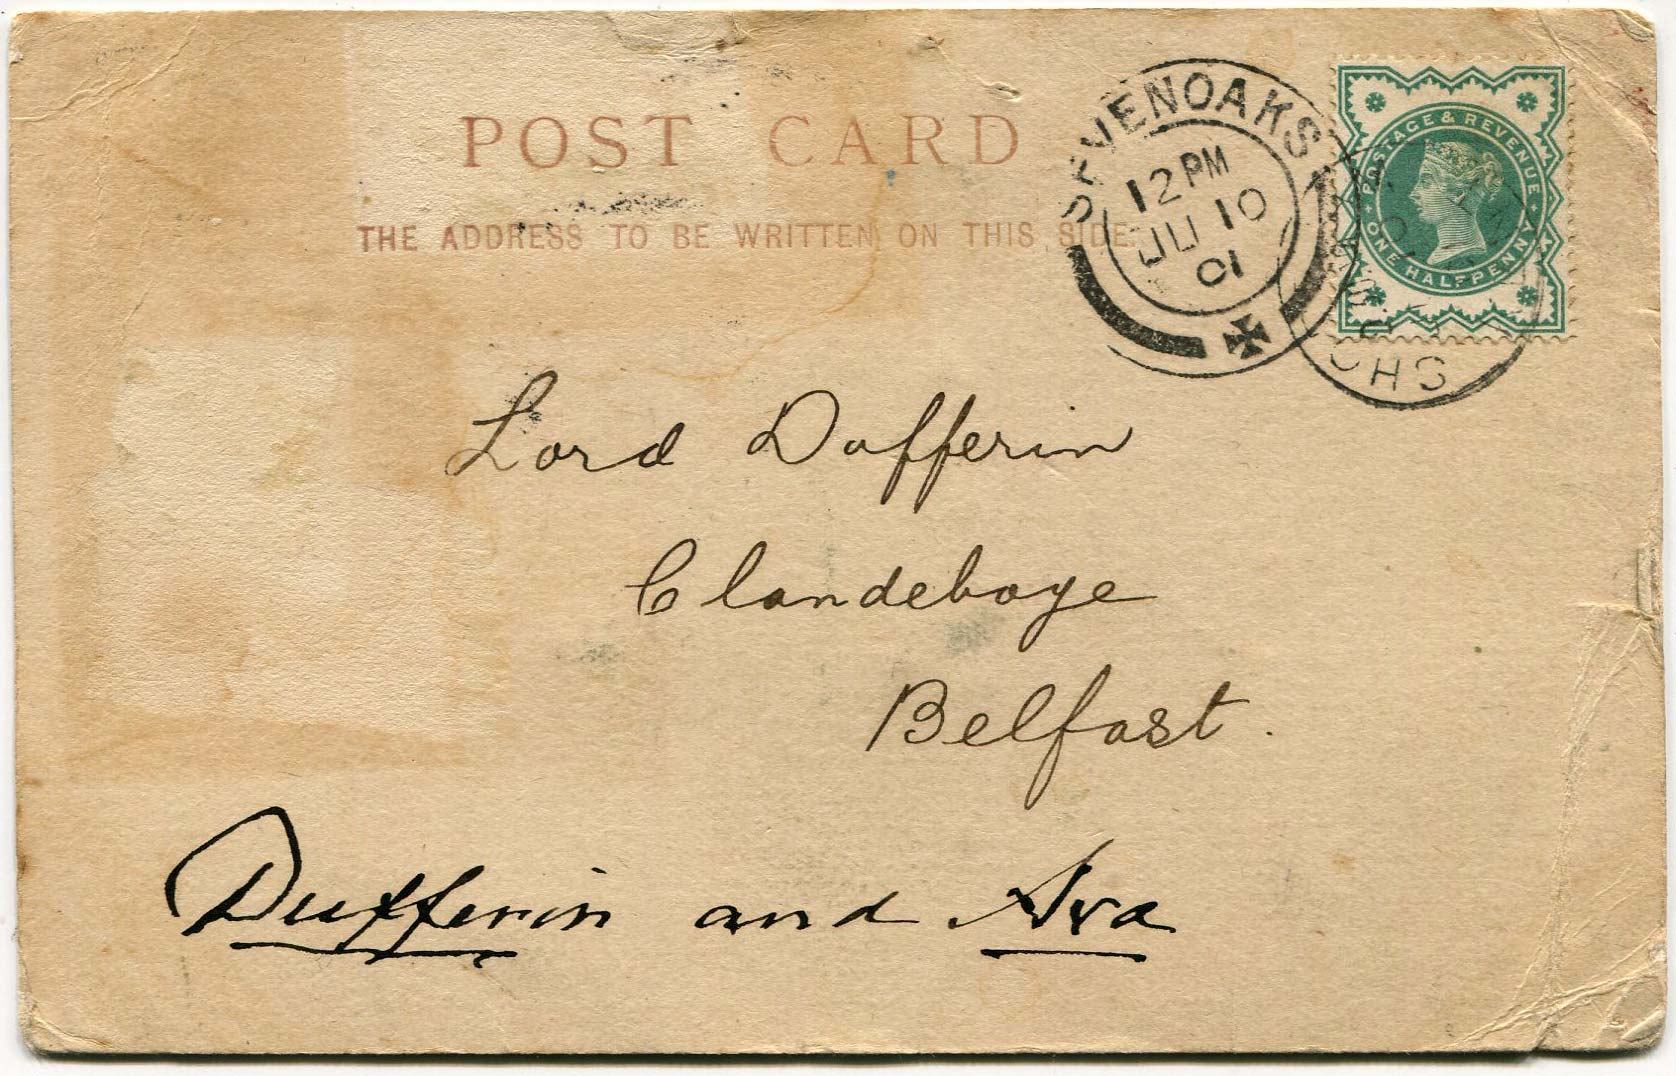 POST CARD
THE ADDRESS TO BE WRITTEN ON THIS SIDE.
SEVENOAKS
12 PM
JU 10
01
POSTAGE & REVENUE
ONE HALFPENNY
Lord Dufferin
Clandeboye
Belfast.
Dufferin and Ava